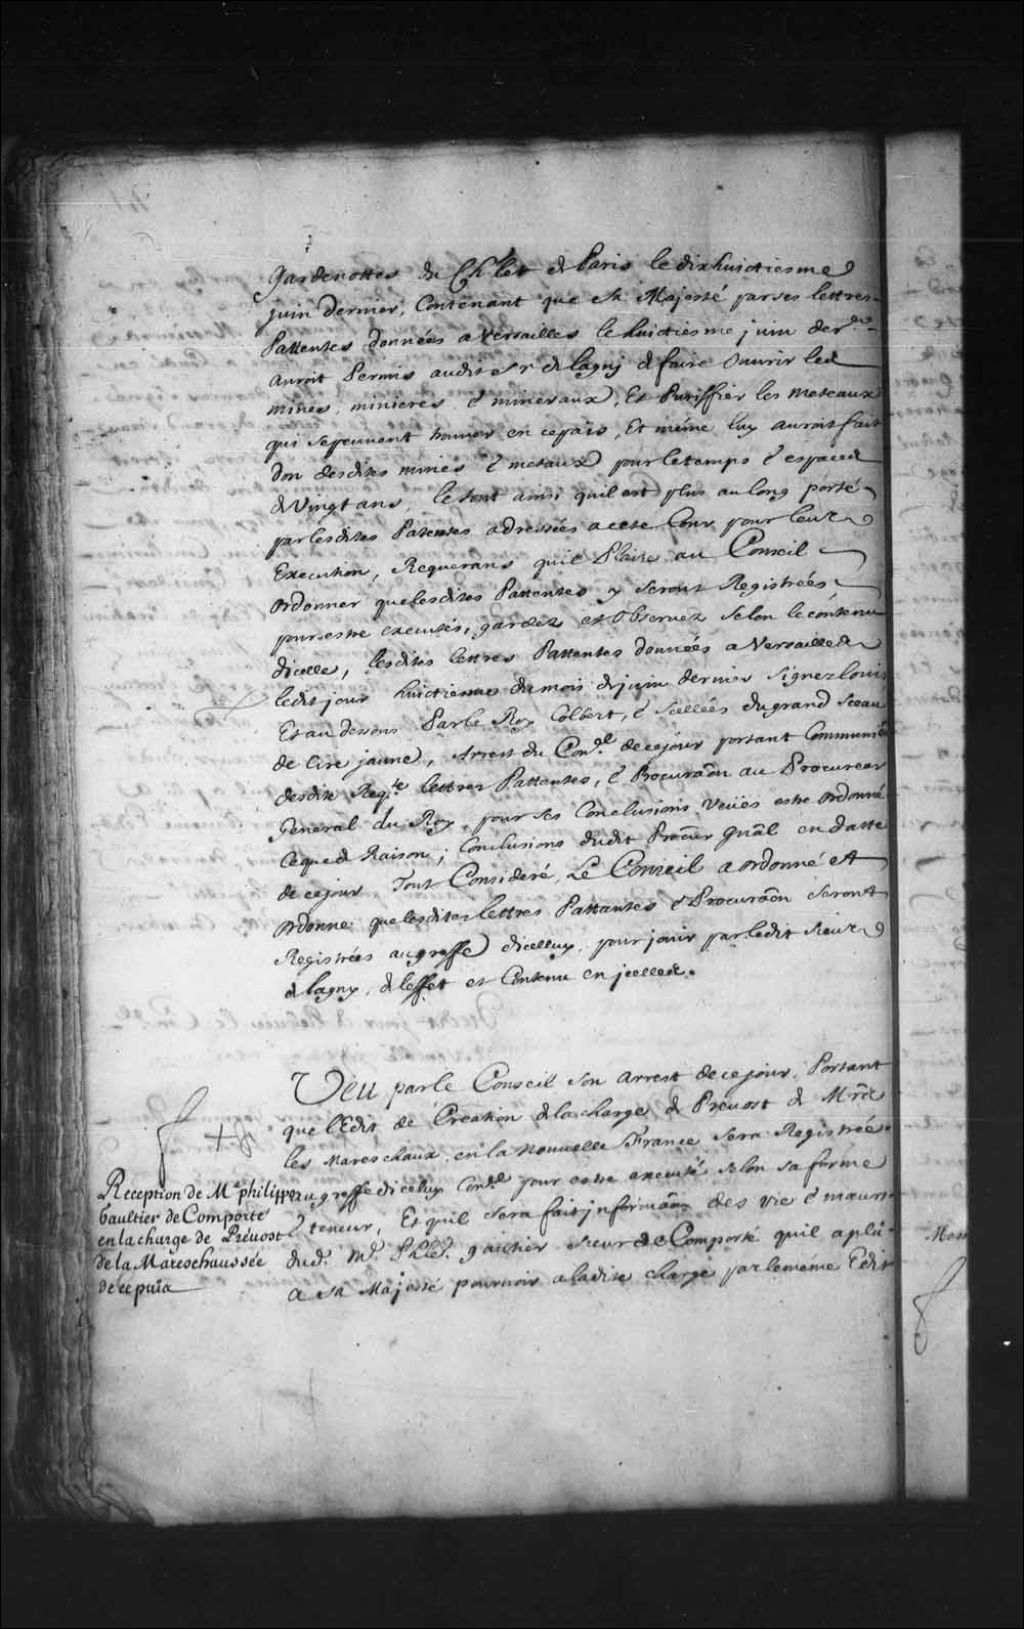 Gardenottes du Ch'let de Paris le dixhuictiesme
juin dernier, Contenant que sa Majesté par ses lettres
Pattentes données a Versailles le huictiesme juin der.er
auroit Permis audit sr de lagny de faire ouvrir les
mines, minieres & mineraux, Et Puriffier les meteaux
qui se peuvent trouver en ce païs, Et meme luy auroit fait
don desdites mines & metaux pour le temps & espace
de Vingt ans, le tout ainsi quil est plus au long porté
par lesdites Patentes adressées a cete Cour pour leur
Execution, Requerans quil Plaise au Conseil
ordonner que lesdites Pattentes y seront Registrées
pour estre executés, gardez et observez selon le contenu
dicelle, lesdites lettres Pattentes données a Versailles
ledit jour huictieme du mois de juin dernier Signez louis
Et au dessous Par le Roy Colbert, & scellées du grand Sceau
de Cire jaune, Arrest du Con.el de ce jour portant Communi.on
desdite Req.te lettres Pattentes, & Procuraõn au Procureur
General du Roy, pour ses Conclusions Veües estre ordonné
ce que de Raison; Conclusions dudit Procur̃ gñal en datte
de ce jour Tout Consideré, Le Conseil a ordonné et
ordonne que lesdites lettres Pattantes & Procuraõn seront
Registrées au greffe dicelluy, pour jouir par ledit sieur
de lagny, de leffet et Contenu en jcelles.
Veu par le Conseil son arrest de ce jour, Portant
que lEdit de Creation de la charge de Prevost de Mrs̃
les Mareschaux en la nouvelle France sera Registrée
au greffe diceluy Con.el pour estre executé selon sa forme
& teneur, Et quil sera fait jnformaõn des vie & mœurs
dud. M.e Phlẽ. gaultier sieur de Comporté quil a plû
a sa Majesté pourvoir a ladite charge par le méme Edit
Reception de M.e philippe
Gaultier de Comporté
en la charge de Prévost
de la Maréschaussée
de ce païs